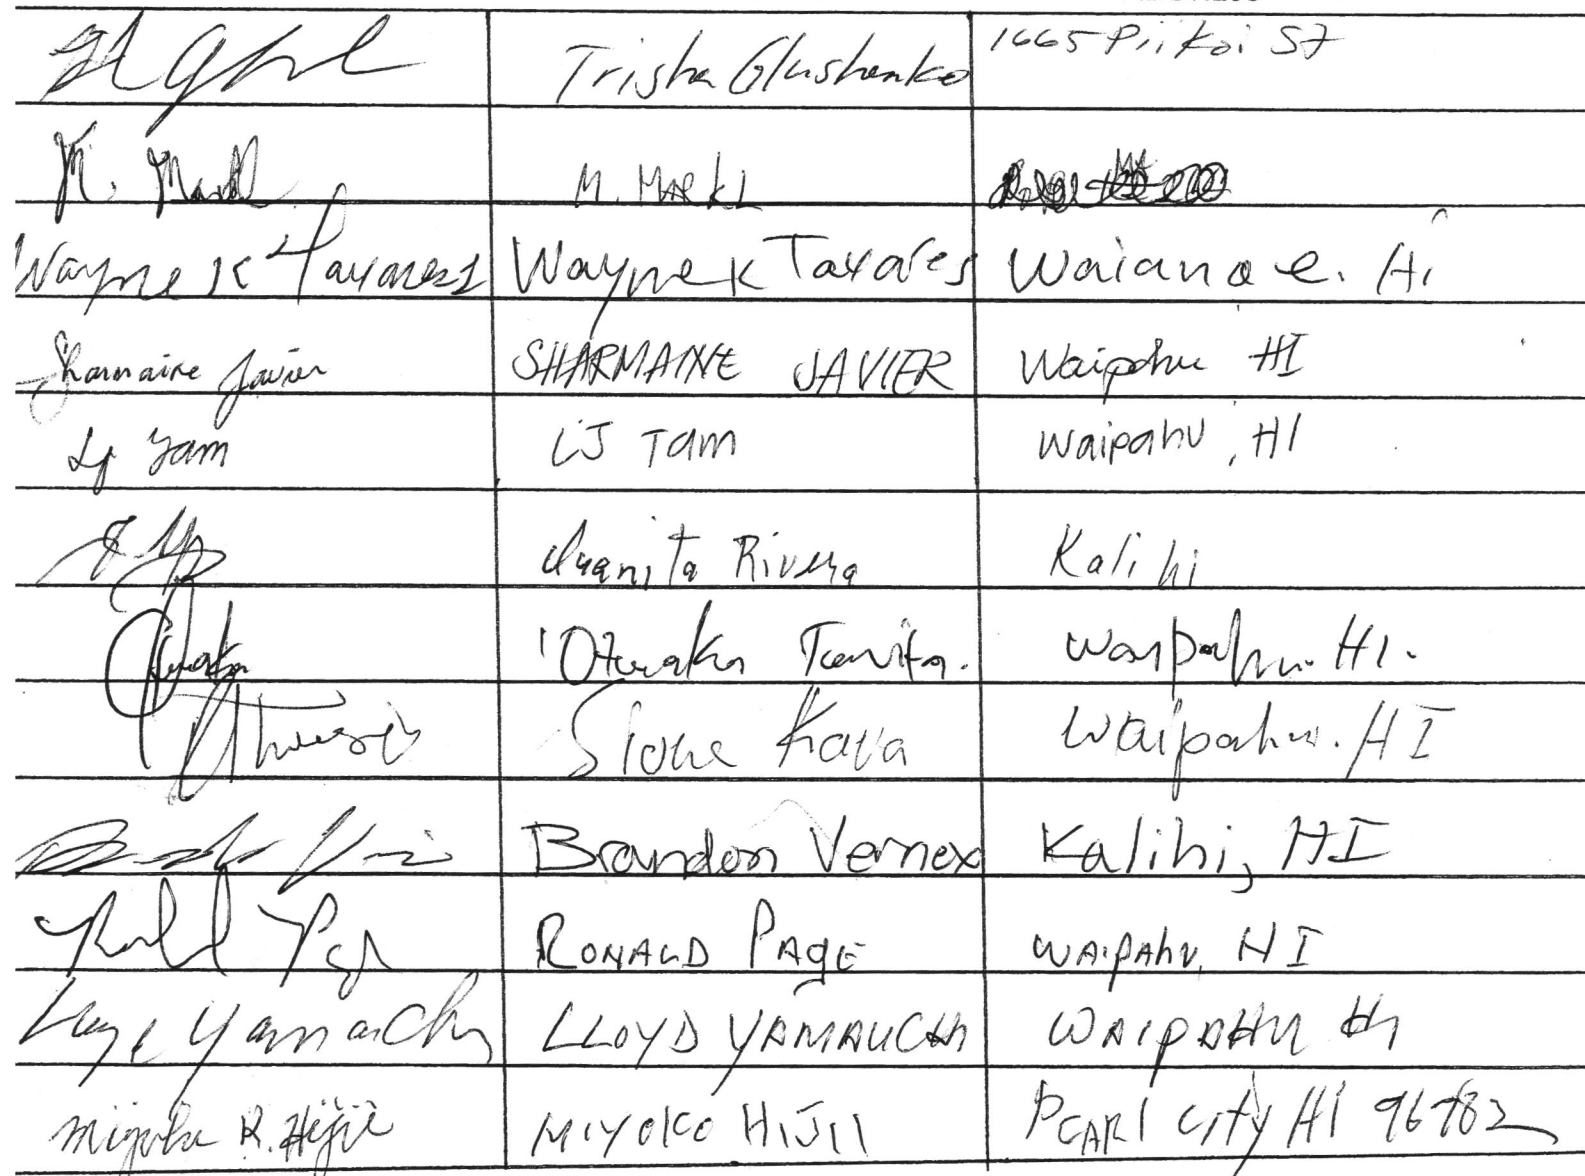 Trisha Glushenko 1665 Piikoi St
M. Markl M. MARKL
Wayne K Tavares Wayne K Tavares Waianae. Hi
Sharmaine Javier SHARMAINE JAVIER Waipahu HI
LJ Tam LJ Tam Waipahu, HI
Juanita Rivera Kalihi
'Otuaka Tanita. Waipahu. HI.
Sione Kava Waipahu. HI
Brandon Kalihi, HI
RONALD PAGE WAIPAHU, HI
Yamauchi LLOYD YAMAUCHI WAIPAHU HI
Miyoko R. Hijii MIYOKO HIJII PEARL City HI 96782